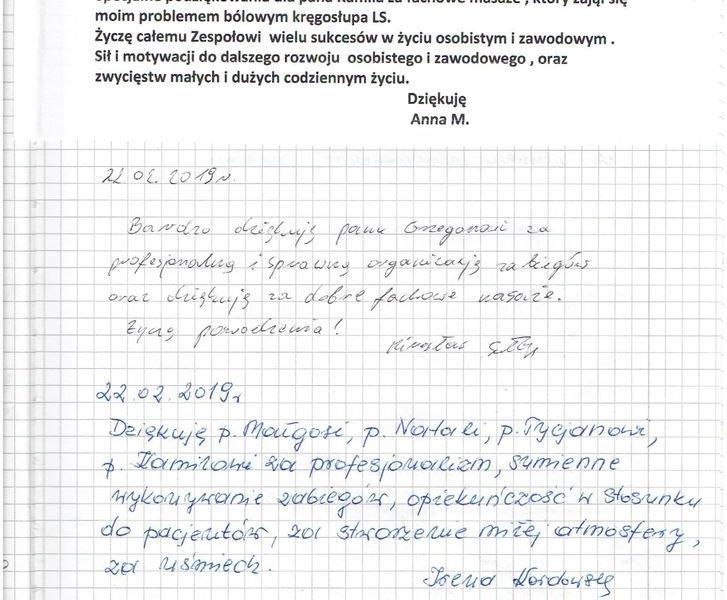 moim problemem bólowym kręgosłupa LS.
Życzę całemu Zespołowi wielu sukcesów w życiu osobistym i zawodowym .
Sił i motywacji do dalszego rozwoju osobistego i zawodowego , oraz
zwycięstw małych i dużych codziennym życiu.
Dziękuję
Anna M.
22 02. 2019r.
Bardzo dziękuję panu Grzegorzowi za
profesjonalną i sprawną organizację zabiegów
oraz dziękuję za dobre fachowe masaże.
Życzę powodzenia!
22.02.2019r
Dziękuję p. Małgosi, p. Natali, p. Tycjanowi,
p. Kamilowi za profesjonalizm, sumienne
wykonywanie zabiegów, opiekuńczość w stosunku
do pacjentów, za stworzenie miłej atmosfery,
za uśmiech.
Irena